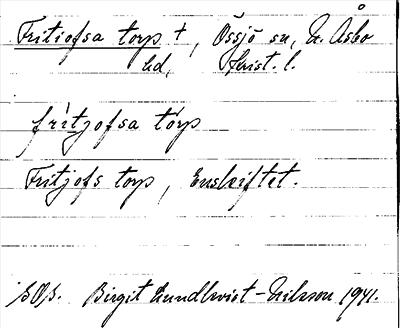 Fritiofsa torp †, Össjö sn, N. Åsbo
hd, Krist. l.
fri̍tjofsa tòrp
Fritjofs torp, Enskiftet.
SOS. Birgit Lundkvist-Nilsson 1941.